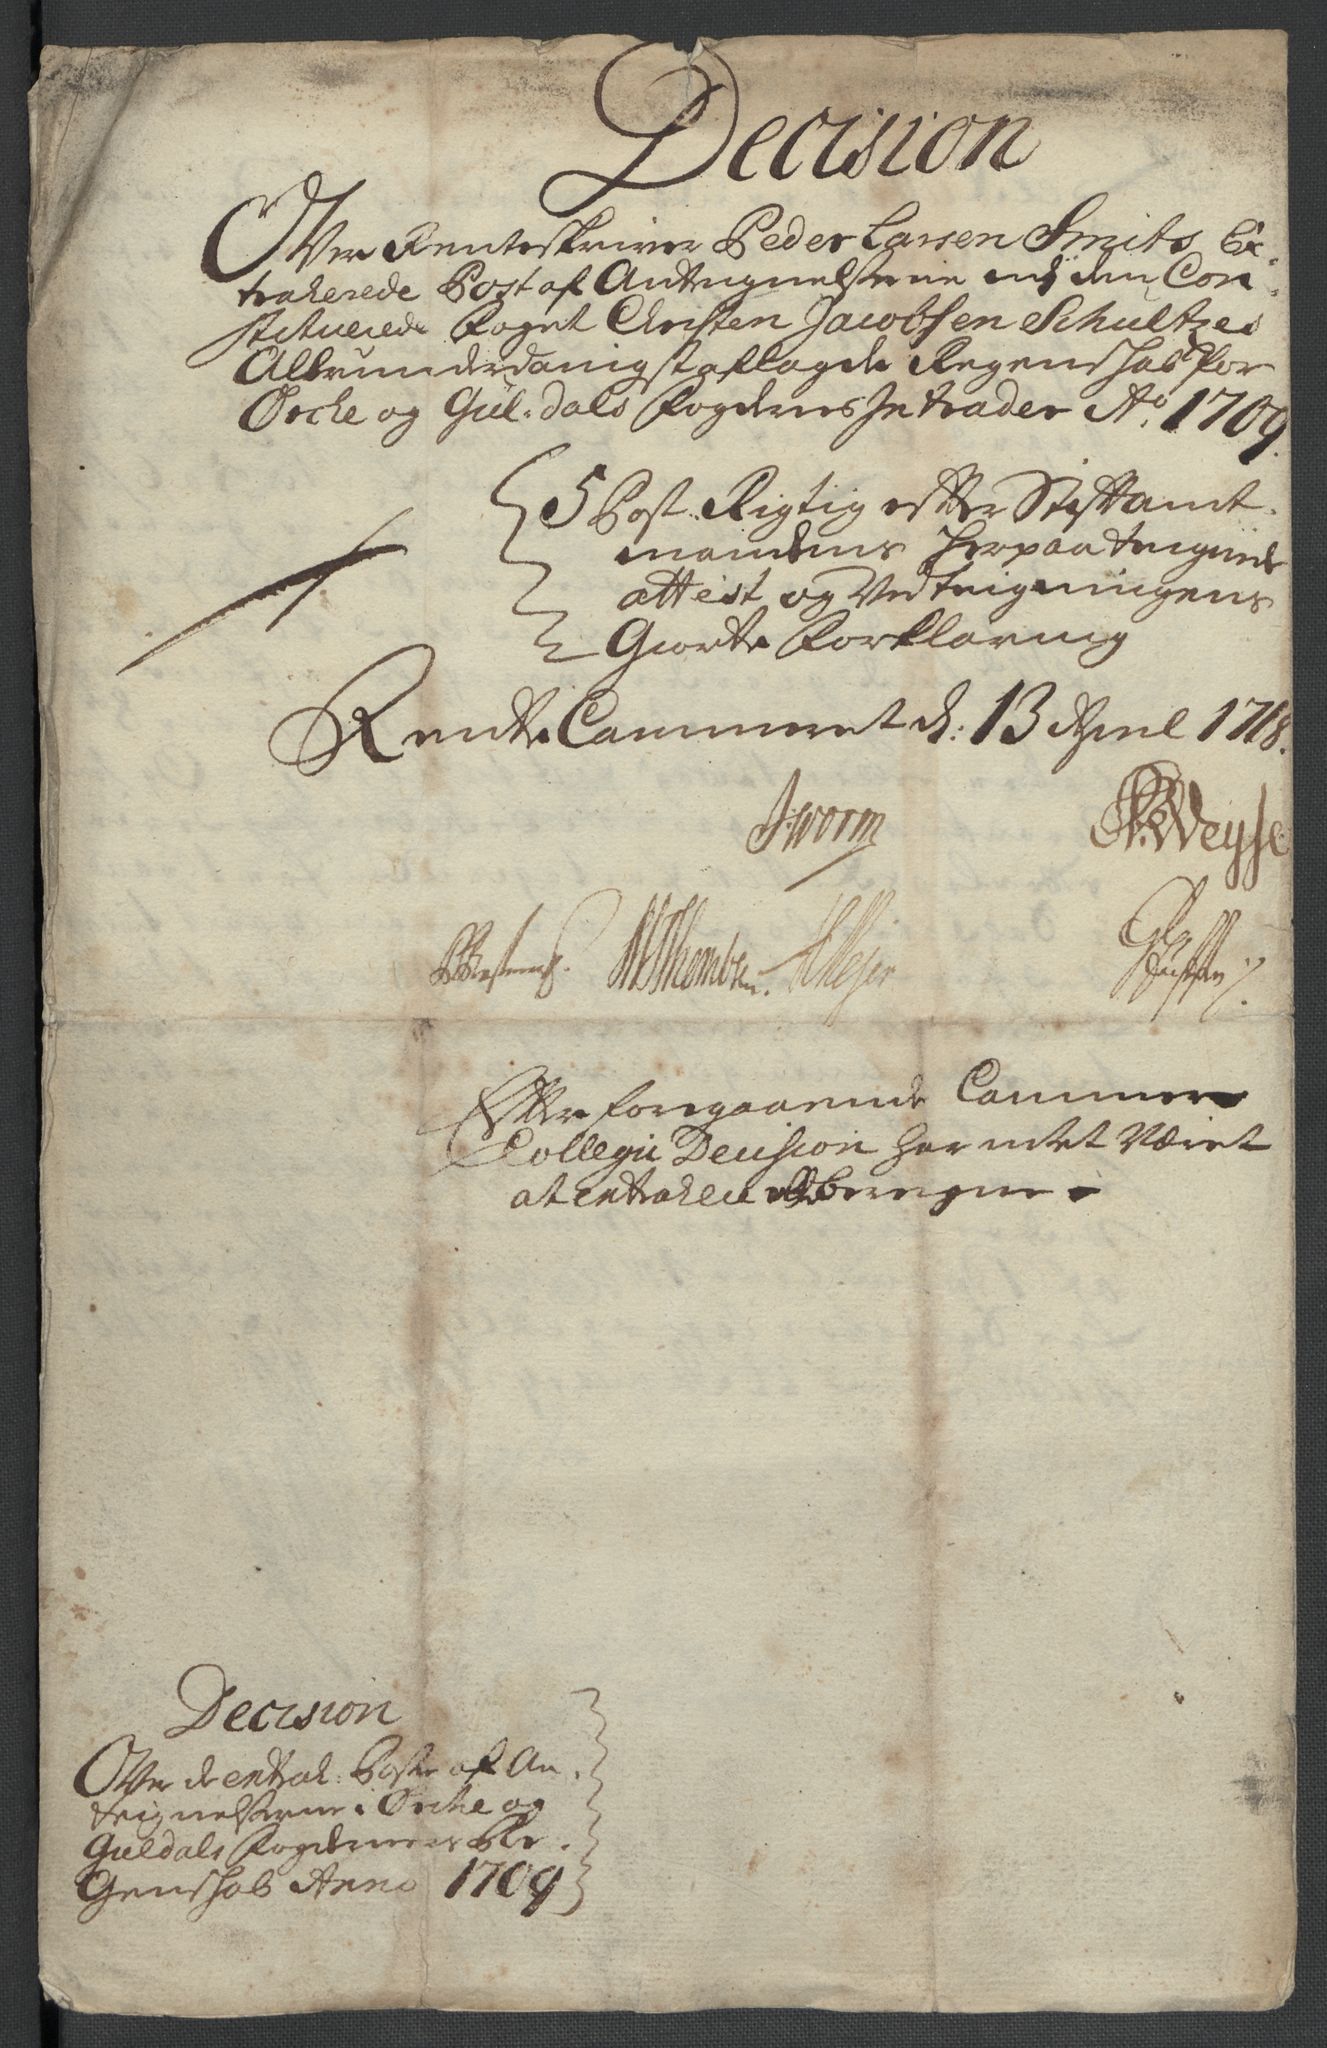 Decision
Over Renteskriver Peder Larsen Smits Ex-
traherede Post af Andtegnelserne ved den Con-
stituerede Foget Christen Jacobsen Schultzes
Allerunderdanigst aflagde Regenskab for
Orche og Gül-dals Fogderies Intrader Ao. 1709.
5 Post Rigtig efter Stiftamt-
mandens herpaa teignede
attest og Vedteigningens
Giorte Forklaring
Rente Cammeret d: 13 April 1718.
JWorm
Weyse
Thombsen. Meyer
Efter foregaaende Cammer
Collegii Decision har intet Været
at extrahere eller beregne
Decision
Over de extrah: Poster af An-
teignelserne i Orche og
Guldals Fogderiers Re-
Genskab Anno 1709